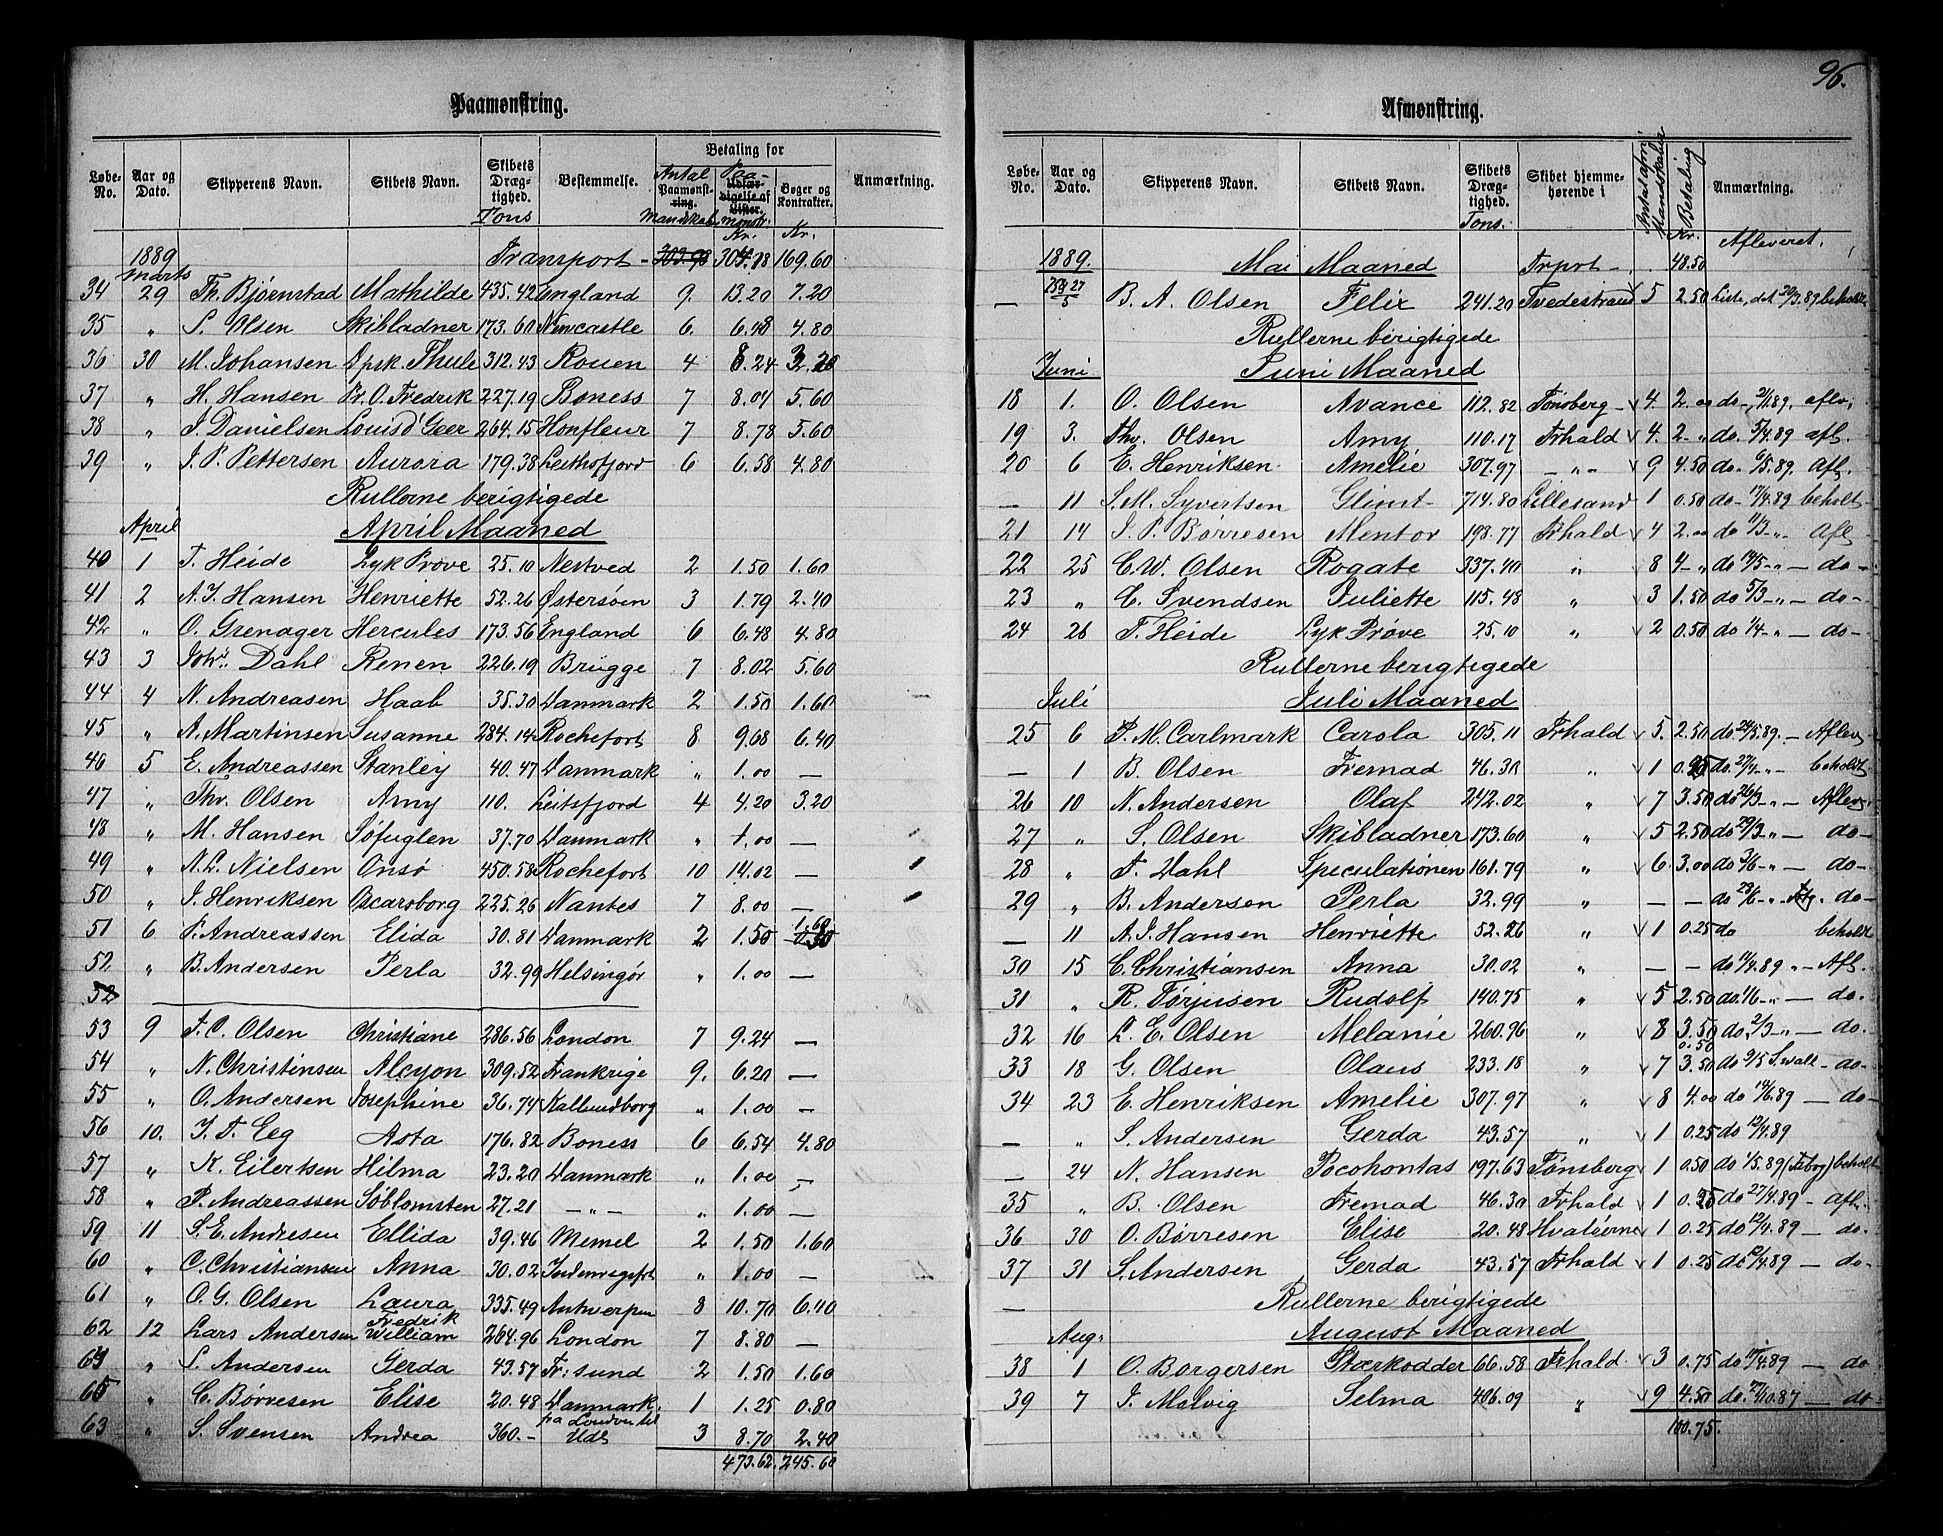 96.
Paamønstring.
Løbe-No. | Aar og Dato. | Skipperens Navn. | Skibets Navn. | Skibets Drægtighed. Tons | Bestemmelse. | Betaling for | Antal Paamønstring. Mandskab | Paamønstr. Kr. | Bøger og Kontrakter. Kr. | Anmærkning.
1889 Transport - 303.98 304.78 169.60
Marts
34 29 Th. Bjørnstad Mathilde 435.42 England 9. 13.20 7.20
35 " S. Olsen Skibladner 173.60 Newcastle 6. 6.48 4.80
36 30 M. Johansen Dpsk. Thule 312.43 Rouen 4 8.24 3.20
37 " H. Hansen Pr. O. Fredrik 227.19 Boness 7 8.04 5.60
38 " J. Danielsen Louis d'Geer 264.15 Honfleur 7 8.78 5.60
39 " J. P. Pettersen Aurora 179.38 Leithsfjord 6 6.58 4.80
Rullerne berigtigede
April April Maaned
40 1 T. Heide Lyk Prøve 25.10 Nestved 2 1.50 1.60
41 2 A. J. Hansen Henriette 52.26 Østersøen 3 1.79 2.40
42 " O. Grenager Hercules 173.56 England 6 6.48 4.80
43 3 Johs. Dahl Renen 226.19 Brügge 7 8.02 5.60
44 4 N. Andreasen Haab 35.30 Danmark 2 1.50 1.60
45 " A. Martinsen Susanne 284.14 Rochefort 8 9.68 6.40
46 5 E. Andreassen Stanley 40.47 Danmark " 1.00 —
47 " Thv. Olsen Amy 110. Leitsfjord 4 4.20 3.20
48 " M. Hansen Søfuglen 37.70 Danmark " 1.00 —
49 " N. L. Nielsen Onsø 450.58 Rochefort 10 14.02 —
50 " J. Henriksen Oscarsborg 225.26 Nantes 7 8.00 —
51 6 P. Andreassen Elida 30.81 Danmark 2 1.50 1.60
52 " B. Andersen Perla 32.99 Helsingør " 1.00 —
52
53 9 F. C. Olsen Christiane 286.56 London 7 9.24 —
54 " N. Christinsen Alcyon 309.52 Frankrige 9. 6.20 —
55 " O. Andersen Josephine 36.74 Kallundborg " 1.00 —
56 10. J. F. Eeg Asta 176.82 Boness 6 6.54 4.80
57 " K. Eilertsen Hilma 23.20 Danmark " 1.00 —
58 " P. Andreassen Søblomsten 27.21 — " — " 1.00 —
59 11 S. E. Andresen Ellida 39.46 Memel 2 1.50 1.60
60 " C. Christiansen Anna 30.02 Indenrigsfrt " 1.00 —
61 " O. G. Olsen Laura 335.49 Antwerpen 8 10.70 6.40
62 12 Lars Andersen Fredrik William 264.96 London 7 8.80 —
64 " S. Andersen Gerda 43.57 Fr:sund 2 1.50 1.60
65 " C. Børresen Elise 20.48 Danmark 1 1.25 0.80
63 " S. Svensen Andrea 360.- fra London til Uds 3 8.70 2.40
473.62 245.60
Afmønstring.
Løbe-No. | Aar og Dato. | Skipperens Navn. | Skibets Navn. | Skibets Drægtighed. Tons. | Skibet hjemmehørende i | Antal afm. Mandskaber | Betaling Kr. | Anmærkning.
1889. Mai Maaned Trprt - 48.50 Afleveret.
— 27/5 B. A. Olsen Felix 241.20 Tvedestrand 5 2.50 Liste, det 30/3.89 beholdt
Rullerne berigtigede
Juni Juni Maaned
18 1. O. Olsen Avance 112.82 Tønsberg 4. 2.00 do-, 2/1.89, aflev.
19 3. Thv. Olsen Amy 110.17 Frhald 4. 2-" do. 5/4.89 afl.
20 6 E. Henriksen Amelie 307.97 -"- 9 4.50 do. 6/5.89. Afl.
— 11 S. M. Syvertsen Glimt 714.80 Lillesand 1 0.50 do- 17/4.89 beholt
21 14 J. P. Børresen Mentor 198.77 Frhald 4 2.00 do 11/3-"- Afl
22 25 C. W. Olsen Rogate 337.40 " 8 4-" do 14/5-"- do-
23 " C. Svendsen Juliette 115.48 " 3 1.50 do 5/3-"- do-
24 26 T. Heide Lyk Prøve 25.10 " 2 0.50 do 1/4-"- do-
Rullerne berigtigede
Juli Juli Maaned
25 6 P. M. Carlmark Carola 305.11 Frhald 5 2.50 do 24/5.89.- Aflev
— 1 B. Olsen Fremad 46.30 " 1 0.25 do. 27/4-"- beholdt
26 10 N. Andersen Olaf 242.02 " 7 3.50 do 26/3-"- Aflev
27 " S. Olsen Skibladner 173.60 " 5 2.50 do 29/3-"- do-
28 " F. Dahl Speculationen 161.79 " 6. 3.00 do 3/6-"- do-
29 " B. Andersen Perla 32.99 " — — do 23/6-"- do-
— 11 A. J. Hansen Henriette 52.26 " 1 0.25 do beholdt
30 15 C. Christiansen Anna 30.02 " — — do 11/4.89 "- Afl.
31 " R. Tørjusen Rudolf 140.75 " 5 2.50 do 1/6-"- do-
32 16 L. E. Olsen Melanie 260.96 " 8 3.50 0.50 do. 2/3-"- do.
33 18 G. Olsen Olaus 233.18 " 7 3.50 do 9/5 Swall- do-
34 23 E. Henriksen Amelie 307.97 " 8 4.00 do 14/6.89 — do-
— " S. Andersen Gerda 43.57 " 1 0.25 do 12/4.89
— 24 N. Hansen Pocohontas 197.63 Tønsberg 1 0.50 do 1/5.89 (Tsbog) beholt
35 " B. Olsen Fremad 46.30 Frhald 1 0.25 do 27/4.89 - afl.
36 30 O. Børresen Elise 20.48 Hvaløerne 1 0.25 do 12/4.89 — do-
37 31 S. Andersen Gerda 43.57 Frhald 1 0.25 do 12/4.89 — do-
— Rullerne berigtigede
Aug. August Maaned
38 1 O. Borgersen Stærkodder 66.58 Frhald 3 0.75 do 11/4.89 — do
39 7 J. Malvig Selma 406.09 " 9 4.50 do. 27/10.87 — do-
100.75.